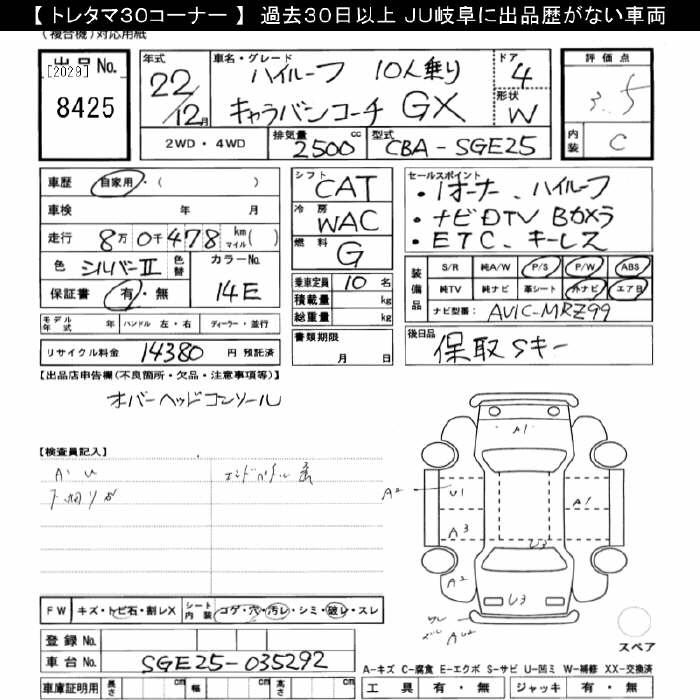 【トレタマ30コーナー】 過去30日以上 JU岐阜に出品歴がない車両
(複合機)対応用紙
出品No. [2029] 8425
年式 22/12月
車名・グレード ハイルーフ 10人乗り
キャラバンコーチ GX
ドア 4
形状 W
評価点 3.5
内装 C
2WD・4WD 排気量 2500 cc 型式 CBA-SGE25
車歴 自家用・( )
車検 年 月
走行 8万0千478 km マイル( )
色 シルバーII 色替 カラーNo. 14E
保証書 有・無
モデル年式 年 ハンドル 左・右 ディーラー・並行
リサイクル料金 14380 円 預託済
シフト CAT
冷房 WAC
燃料 G
乗車定員 10 名
積載量 kg
総重量 kg
書類期限 月 日
セールスポイント
・1オーナー、ハイルーフ
・ナビDTV Bカメラ
・ETC、キーレス
装備品 S/R 純A/W P/S P/W ABS
純TV 純ナビ 革シート 外ナビ エアB
ナビ型番: AVIC-MRZ99
後日品 保取Sキー
【出品店申告欄(不良箇所・欠品・注意事項等)】
オーバーヘッドコンソール
【検査員記入】
A・U
A1
A2 U1 A1
A3 U3
A2
U3
FW キズ・トビ石・割レX シート内装 コゲ・穴・汚レ・シミ・破レ・スレ
登録No.
車台No. SGE25-035292
車庫証明用 長さ cm 幅 cm 高さ cm
スペア
A-キズ C-腐食 E-エクボ S-サビ U-凹ミ W-補修 XX-交換済
工具 有・無 ジャッキ 有・無